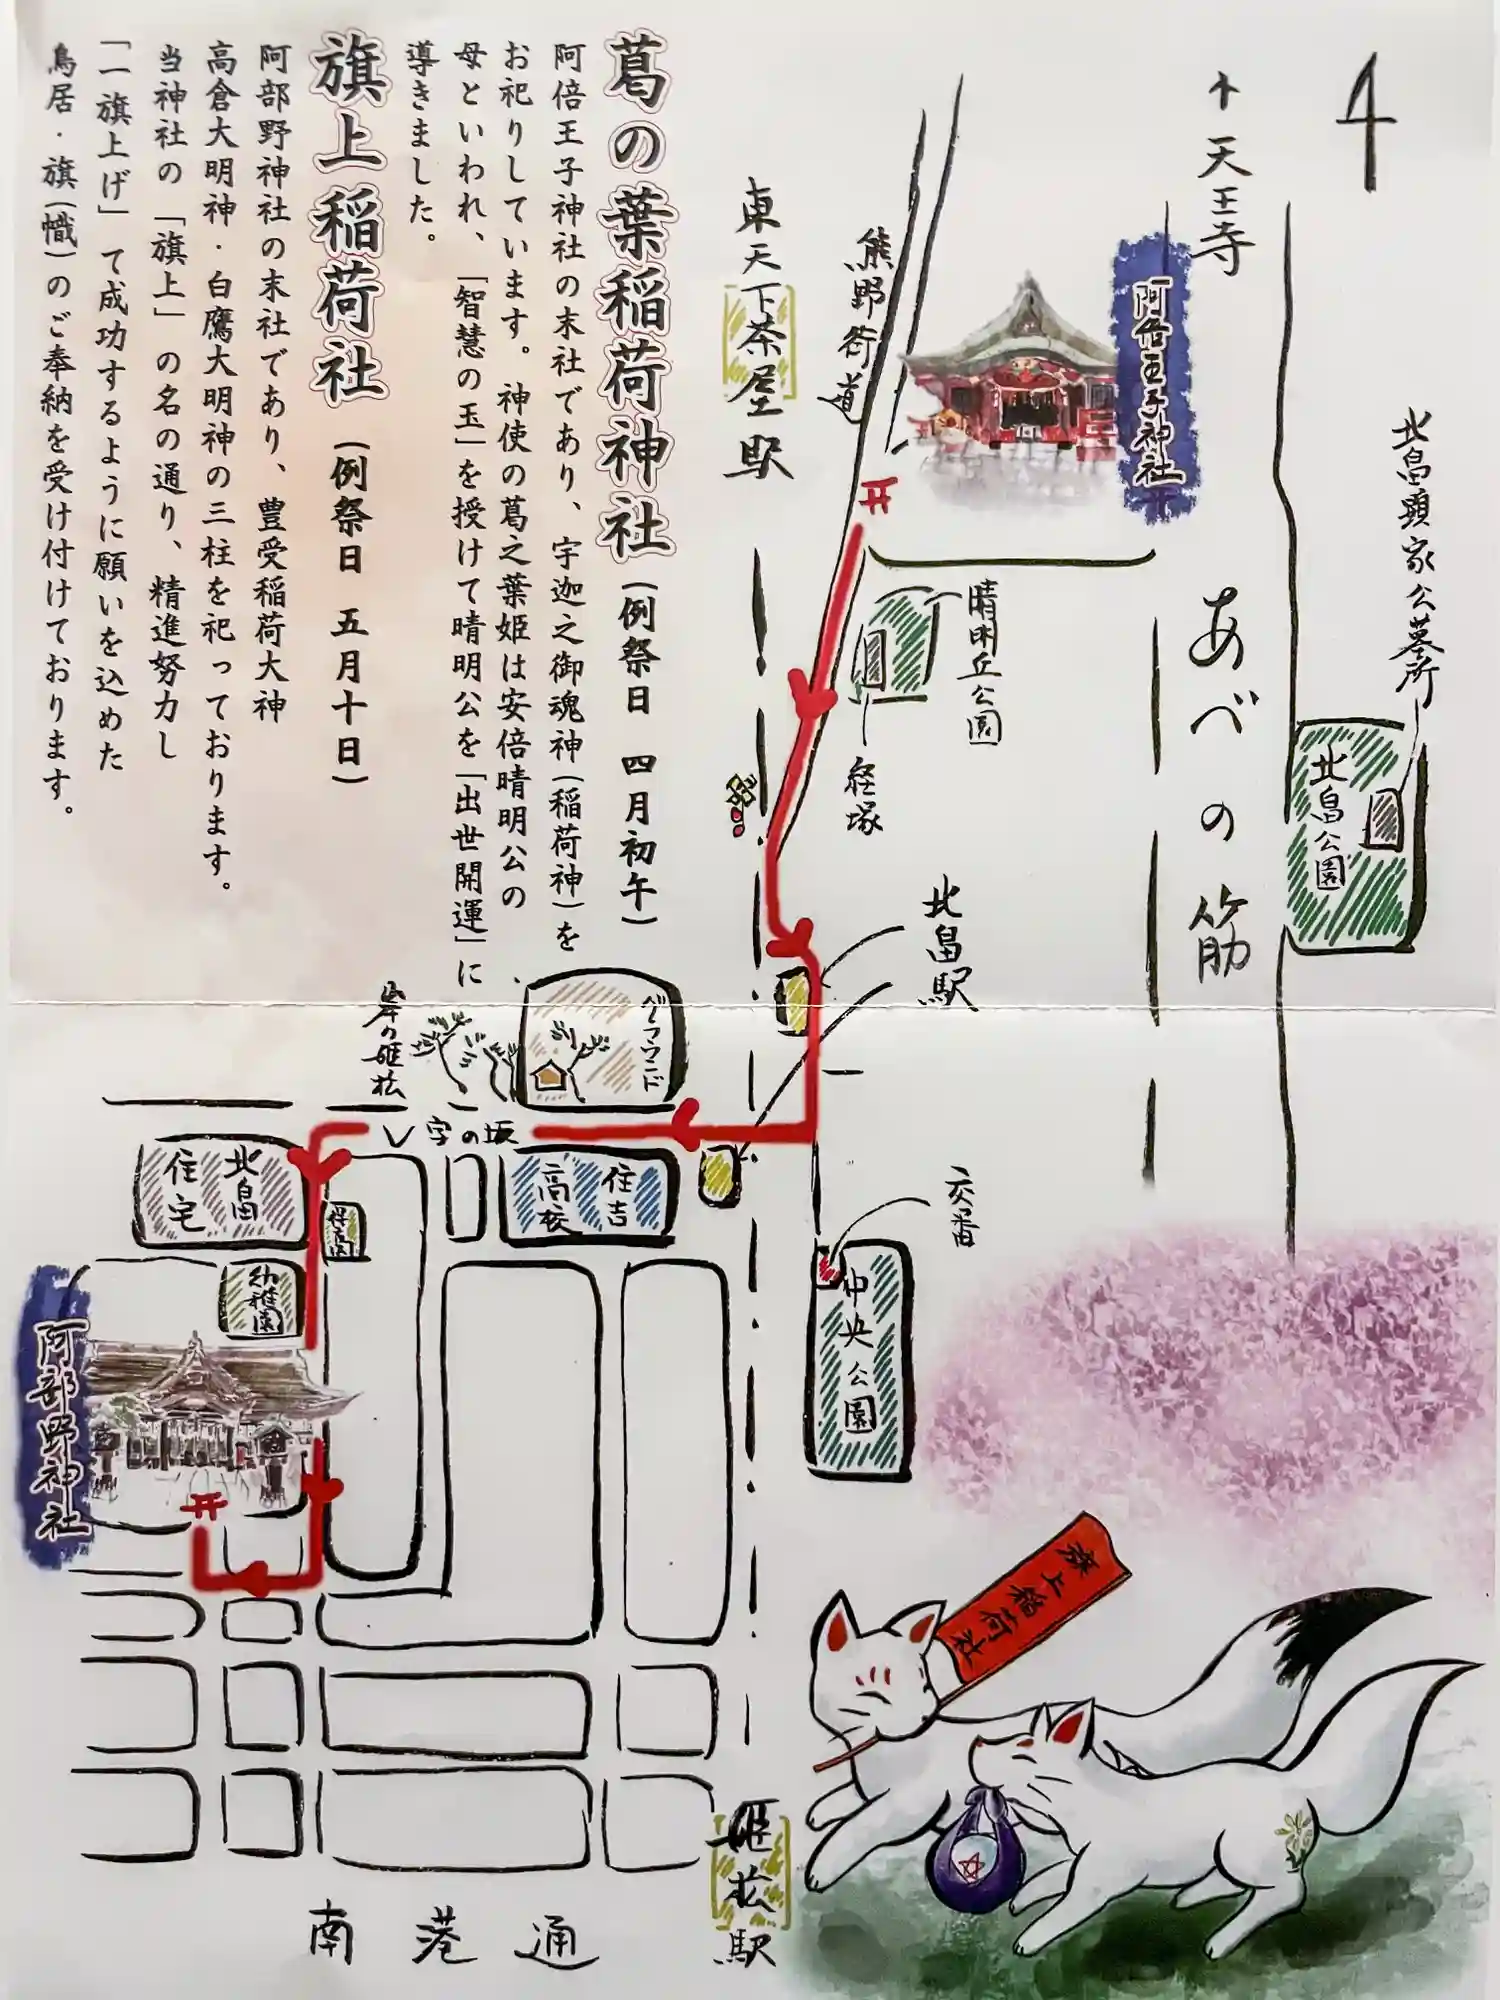 葛の葉稲荷神社(例祭日 四月初午)
阿倍王子神社の末社であり、宇迦之御魂神(稲荷神)を
お祀りしています。神使の葛之葉姫は安倍晴明公の
母といわれ、「智慧の玉」を授けて晴明公を「出世開運」に
導きました。
旗上稲荷社(例祭日 五月十日)
阿部野神社の末社であり、豊受稲荷大神
高倉大明神・白鷹大明神の三柱を祀っております。
当神社の「旗上」の名の通り、精進努力し
「一旗上げ」て成功するように願いを込めた
鳥居・旗(幟)のご奉納を受け付けております。
↑天王寺
東天下茶屋駅
熊野街道
阿倍王子神社
北畠顕家公墓所
晴明丘公園
経塚
あべの筋
北畠公園
北畠駅
グラウンド
岸の姫松
V字の坂
北畠住宅
保育園
住吉高校
幼稚園
交番
中央公園
阿部野神社
旗上稲荷社
姫松駅
南港通